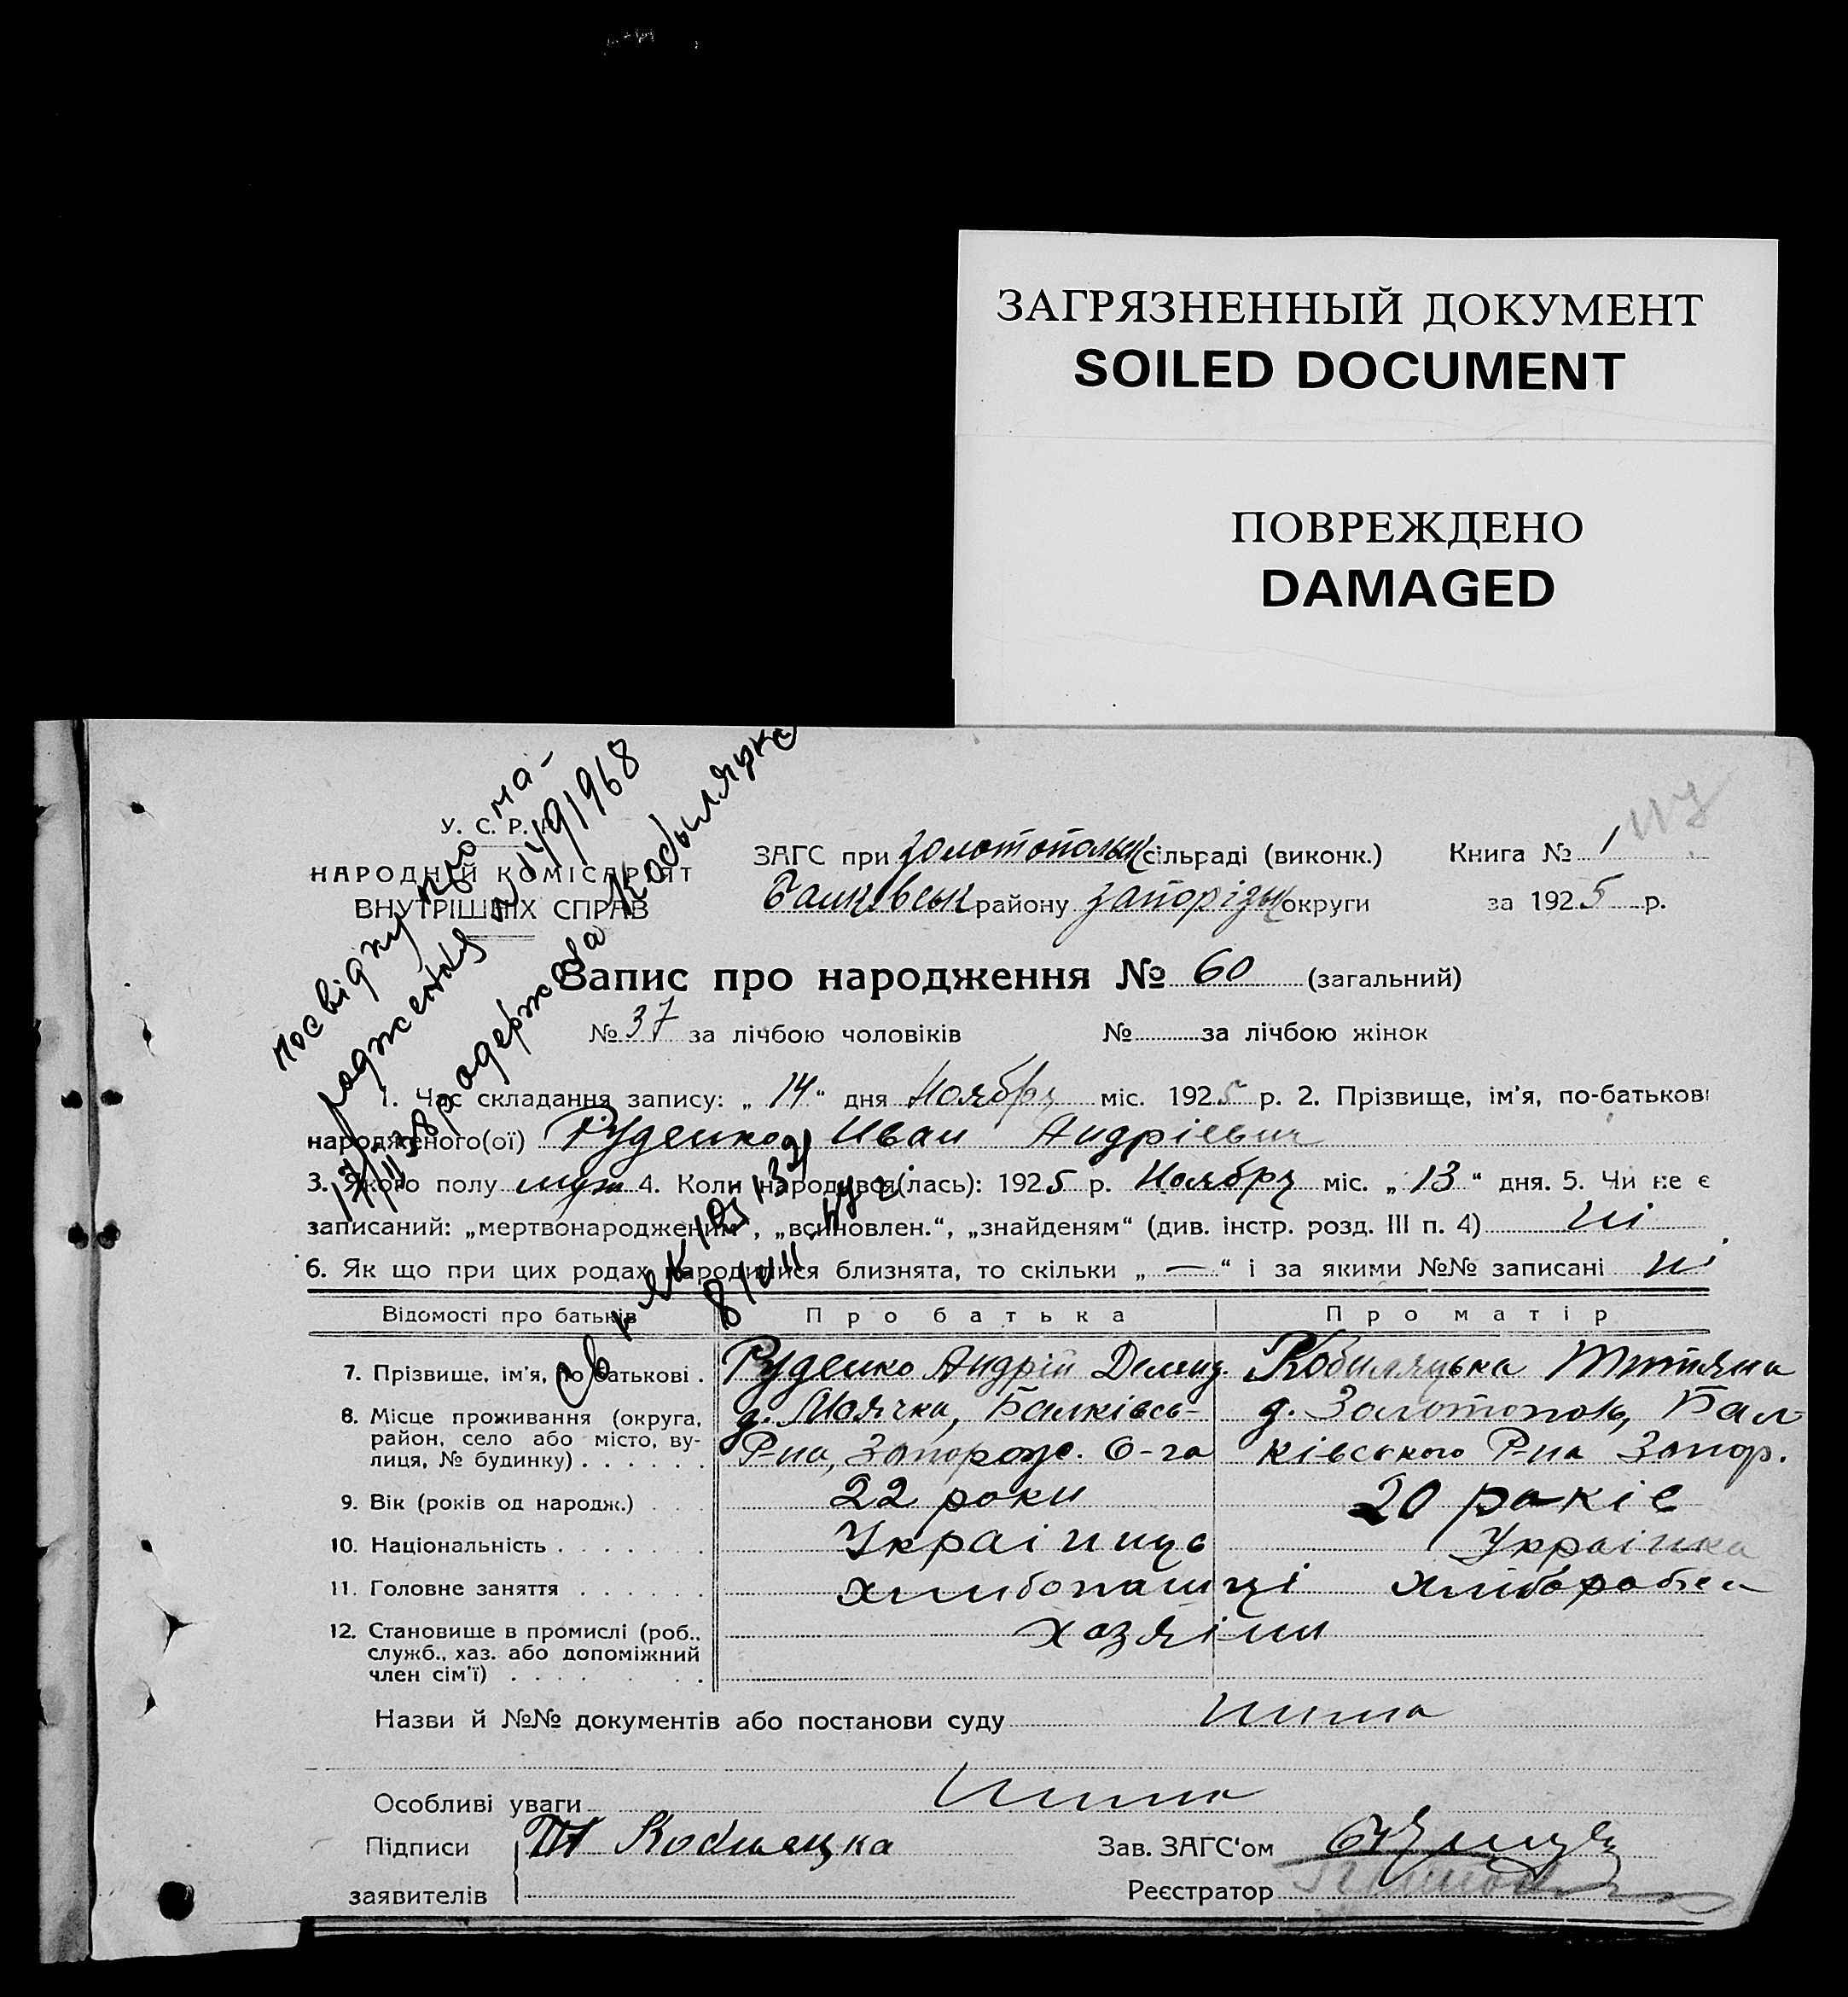 ЗАГРЯЗНЕННЫЙ ДОКУМЕНТ
SOILED DOCUMENT
ПОВРЕЖДЕНО
DAMAGED
посвідку про на-
родження № 1491968
одержала Кобыляцка
У. С. Р. Р.
НАРОДНІЙ КОМІСАРІЯТ
ВНУТРІШНІХ СПРАВ
ЗАГС при Золотопольськ сільраді (виконк.) Книга № 1
Балківськ району Запорізьк округи за 1925 р.
Запис про народження № 60 (загальний)
№ 37 за лічбою чоловіків № за лічбою жінок
1. Час складання запису: „ 14 “ дня Ноября міс. 1925 р. 2. Прізвище, ім'я, по-батькові
народженого(ої) Руденко Иван Андрієвич
3. Якого полу муж 4. Коли народився(лась): 1925 р. Ноября міс. „ 13 “ дня. 5. Чи не є
записаний: „мертвонародженим“, „всиновлен.“, „знайденям“ (див. інстр. розд. III п. 4) ні
6. Як що при цих родах народилися близнята, то скільки „ — “ і за якими №№ записані ні
Відомості про батьків Про батька Про матір
7. Прізвище, ім'я, по батькові . Руденко Андрій Демяд. Кобиляцька Титяна
8. Місце проживання (округа, д. Маячка, Балківсь- д. Золотополь, Бал-
район, село або місто, ву- Р-на, Запорож. О-га ківського Р-на Запор.
лиця, № будинку) . . . . . .
9. Вік (років од народж.) . . . 22 роки 20 років
10. Національність . . . . . . . Українць Українка
11. Головне заняття . . . . . . хлибопашці хліборобка
12. Становище в промислі (роб., хазяїни
служб., хаз. або допоміжний
член сім'ї) . . . . . . .
Назви й №№ документів або постанови суду Нима
Особливі уваги Нима
Підписи Т Кобиляцка Зав. ЗАГС'ом
заявителів Реєстратор